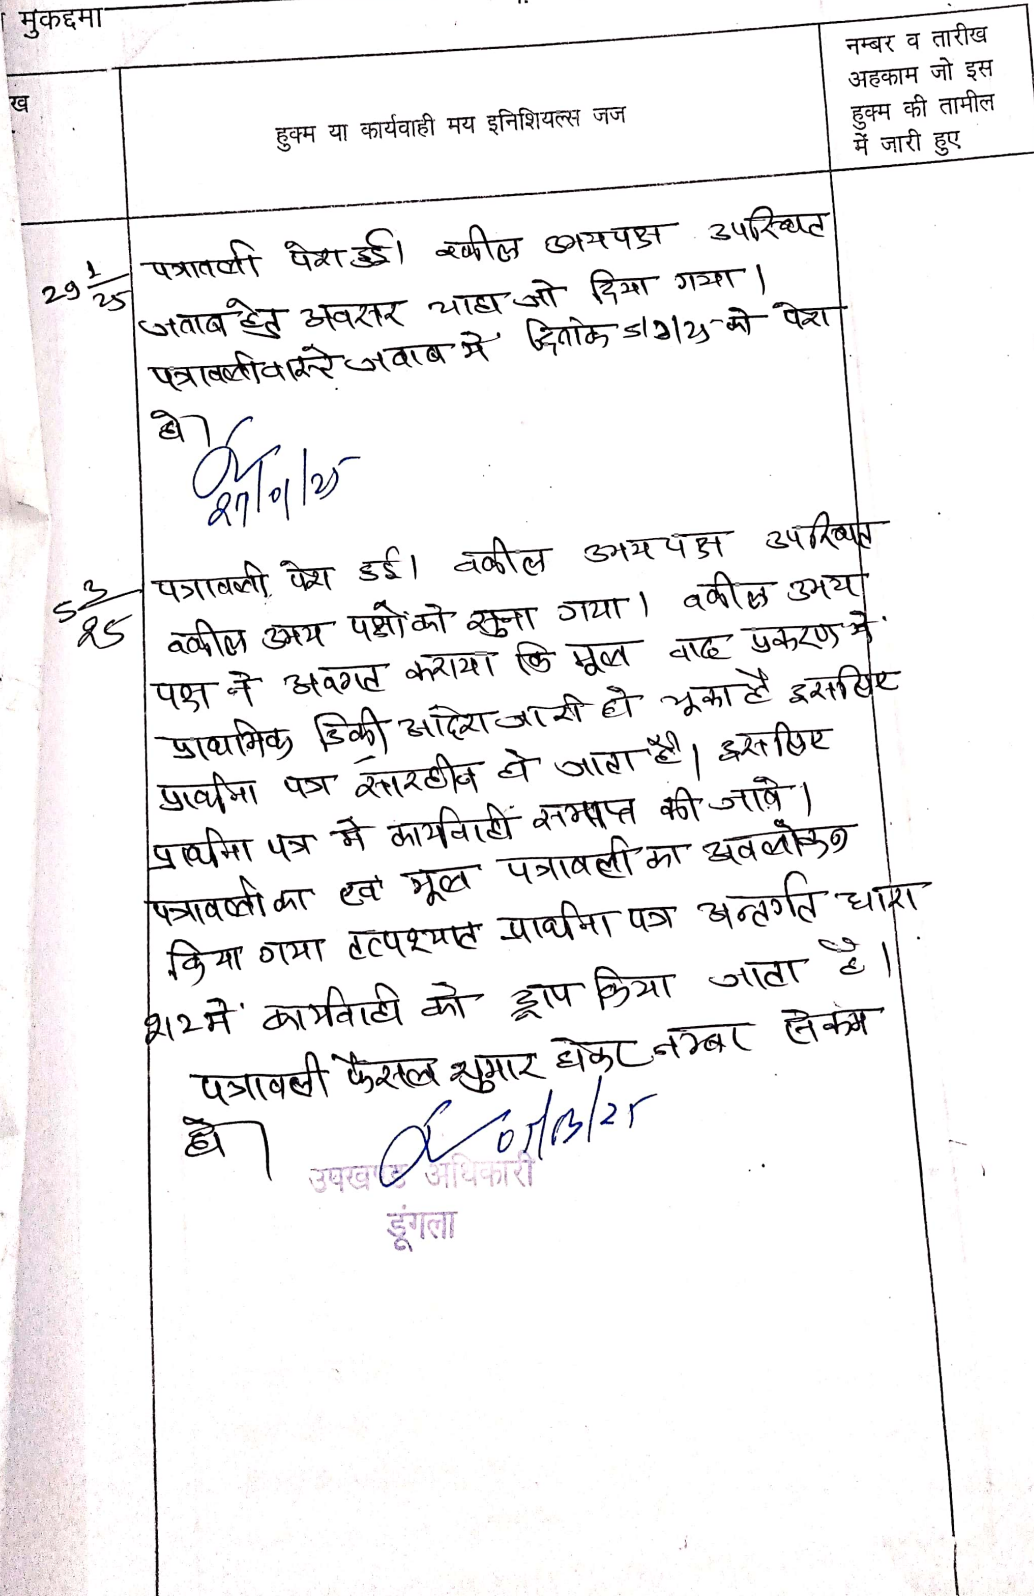 मुकद्दमा
ख
हुक्म या कार्यवाही मय इनिशियल्स जज
नम्बर व तारीख
अहकाम जो इस
हुक्म की तामील
में जारी हुए
29 1/25
पत्रावली पेश हुई। वकील उभयपक्ष उपस्थित
जवाब हेतु अवसर चाहा जो दिया गया।
पत्रावली वास्ते जवाब में दिनांक 5/3/25 को पेश
हो।
5 3/25
पत्रावली पेश हुई। वकील उभय पक्ष उपस्थित
वकील उभय पक्षों को सुना गया। वकील उभय
पक्ष ने अवगत कराया कि मूल वाद प्रकरण में
प्राथमिक डिक्री आदेश जारी हो चूका है इसलिए
प्रार्थना पत्र सारहीन हो जाता है। इसलिए
प्रार्थना पत्र में कार्यवाही समाप्त की जावे।
पत्रावली का एवं मूल पत्रावली का अवलोकन
किया गया तत्पश्यात प्रार्थना पत्र अन्तर्गत धारा
212 में कार्यवाही को ड्राप किया जाता है।
पत्रावली फैसल शुमार होकर नम्बर से कम
हो।
05/03/25
उपखण्ड अधिकारी
डूंगला